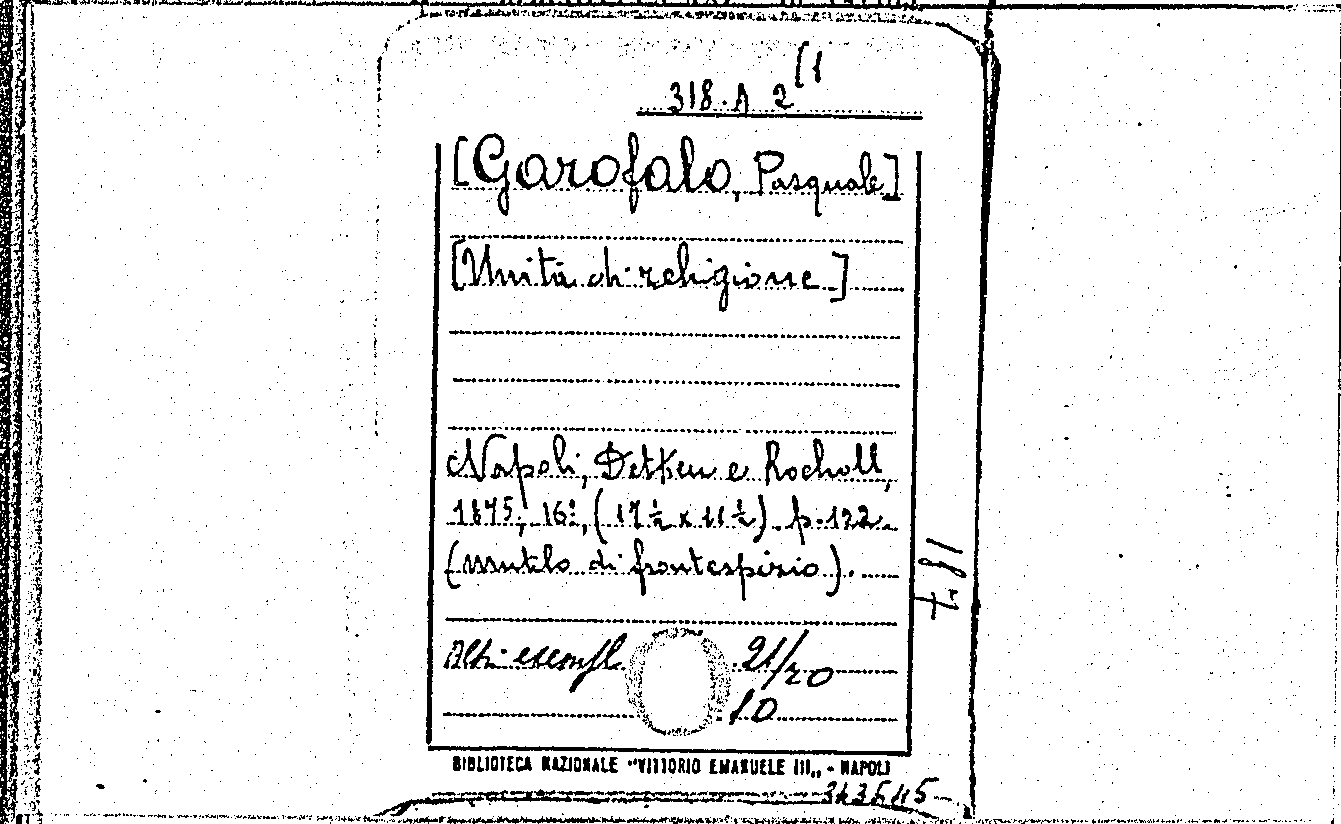 318. A 2 [1
[Garofalo, Pasquale]
[Unità di religione]
Napoli, Detken e Rocholl,
1875, 16°, (17 ½ x 11 ½) p. 122.
(mutilo di frontespizio).
Altri esempl. 21/20
10
BIBLIOTECA NAZIONALE "VITTORIO EMANUELE III„ - NAPOLI